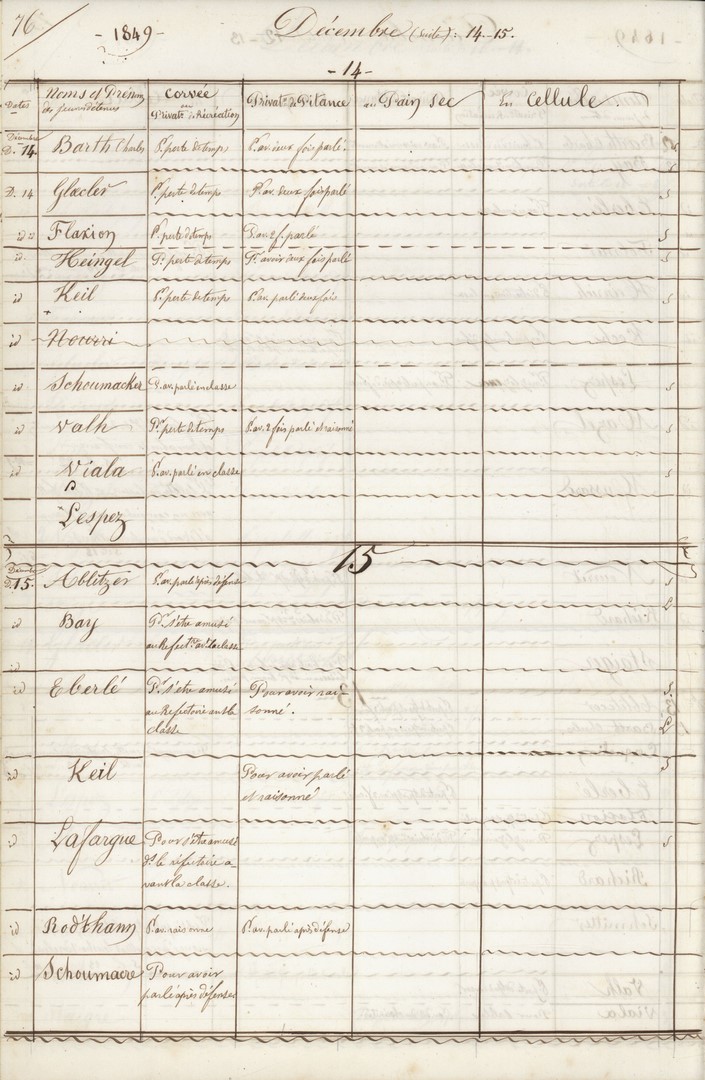 76
- 1849 -
Décembre (suite): 14-15.
- 14 -
Dates
Noms et Prénoms
des jeunes détenus
Corvée
ou
Privatn de Récréation
Privatn de Pitance
au Pain sec
En Cellule
Décembre
D. 14.
Barth Charles
Pr. perte de temps
P. av. deux fois parlé.
D. 14
Glaeler
Pr. perte de temps
P. av. deux fois parlé
id
Flaxion
Pr. perte de temps
P. av. 2 f. parlé
id.
Heingel
Pr. perte de temps
P. avoir deux fois parlé
id
Keil
Pr. perte de temps
P. av. parlé deux fois
id
Nourri
id
Schoumacker
P. av. parlé en classe
id
Valh
Pr. perte de temps
P. av. 2 fois parlé et raisonné
id
Viala
P. av. parlé en classe
Lespez
15
Décembre
D. 15.
Ablitzer
P. av. parlé après défense
id
Bay
Pr. s'être amusé
au Refectre avt la classe
id
id
Eberlé
Pr. s'être amusé
au Refectoire avt la
classe
Pour avoir rai-
sonné.
id
Keil
Pour avoir parlé
et raisonné
id
Lafargue
Pour s'être amusé
ds. le réfectoire a-
vant la classe.
id
Rodthann
P. av. raisonné
P. av. parlé après défense
id
Schoumacre
Pour avoir
parlé après défenses